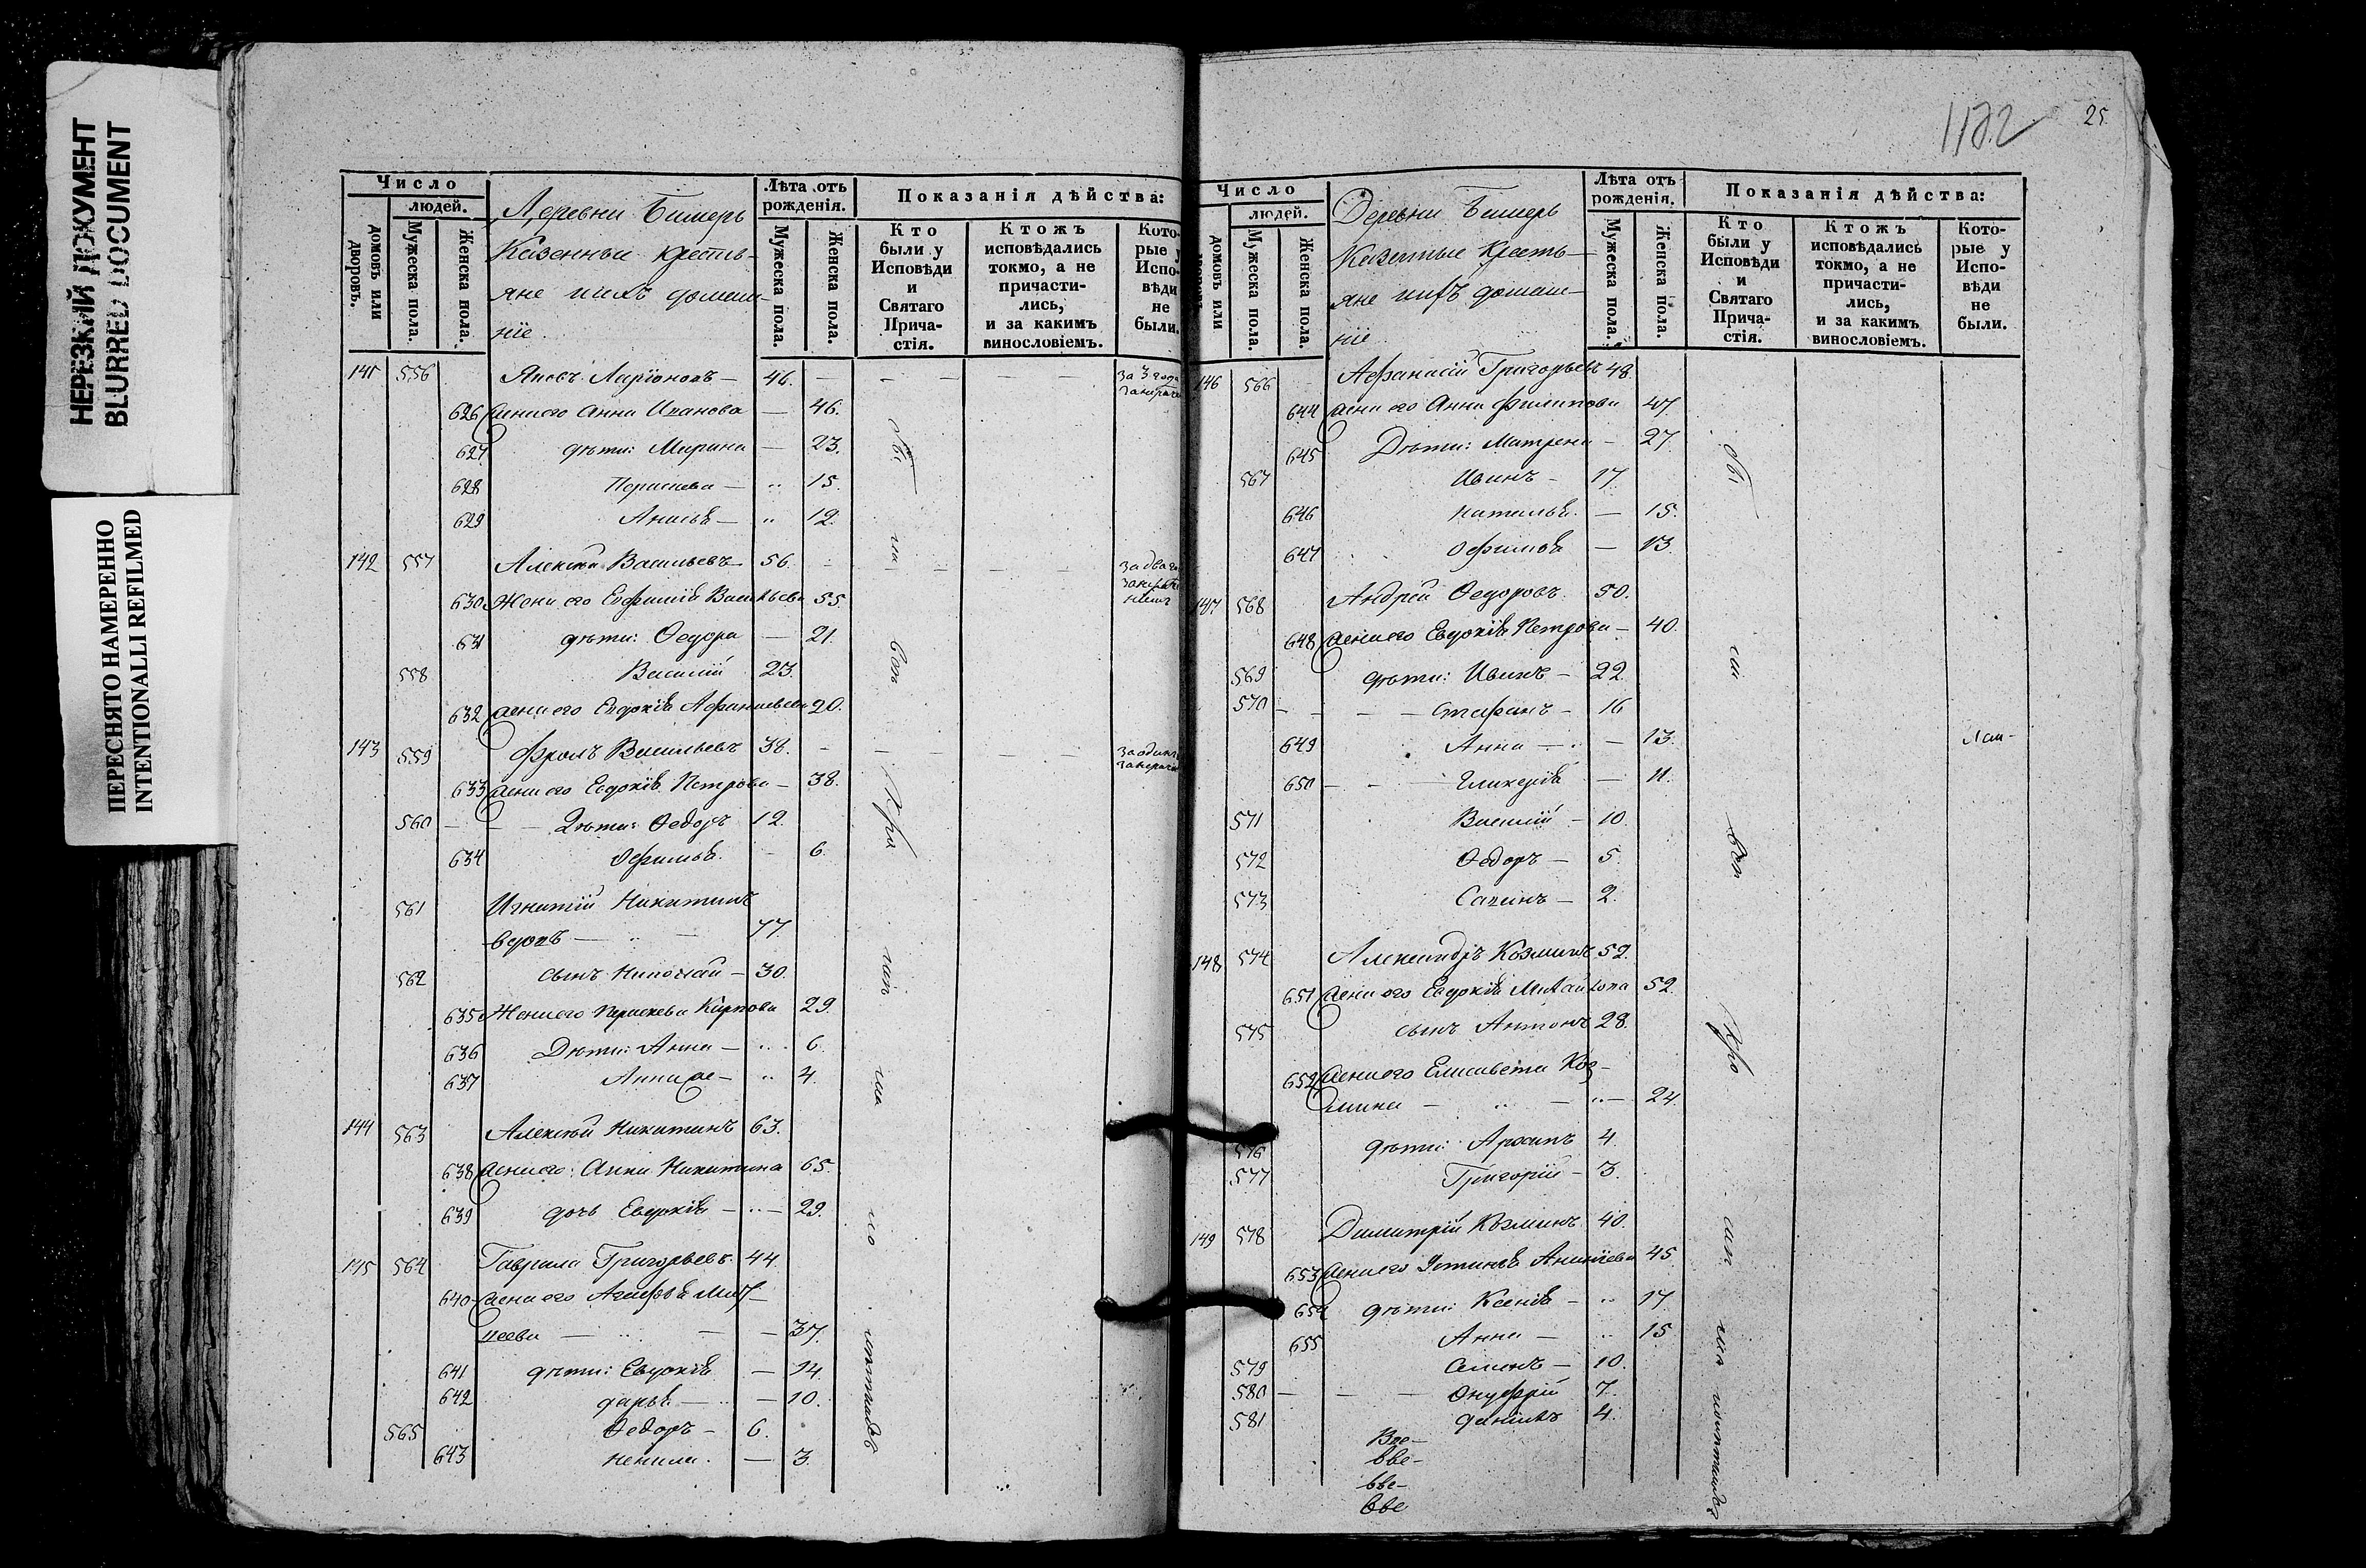 НЕРЕЗКИЙ ДОКУМЕНТ
BLURRED DOCUMENT
ПЕРЕСНЯТО НАМЕРЕННО
INTENTIONALLI REFILMED
Число
людей.
домовъ или дворовъ.
Мужеска пола.
Женска пола.
Деревни Бимерь
Казенныи кресть-
яне ихъ домаш-
ніе.
Лѣта отъ рожденія.
Мужеска пола.
Женска пола.
Показанія дѣйства:
Кто были у Исповѣди и Святаго Прича-стія.
Ктожъ исповѣдались токмо, а не причасти-лись, и за какимъ винословіемъ.
Кото-рые у Испо-вѣди не были.
141 556 Яковъ Ларіоновъ 46.
626 жена его Анна Иванова 46.
627 дѣти: Марина 23.
628 Парасковa 15.
629 12.
142 557 Алексѣй Васильевъ 56.
630 Жена его Евфимія Васильева 55.
631 дѣти: Ѳедора 21.
558 Василій 23.
632 жена его Евдокія Афанасьева 20.
143 559 Фролъ Васильевъ 38.
633 жена его Евдокія Петрова 38.
560 Дѣти: Ѳедоръ 12.
634 Офимья 6.
561 Игнатій Никитинъ
вдовъ 77.
562 сынъ Николай 30.
635 Жена его Параскева Карпова 29.
636 Дѣти: Анна 6.
637 Анна же 4.
144 563 Алексѣй Никитинъ 63.
638 жена его Анна Никитина 65.
639 дочь Евдокія 29.
145 564 Гаврила Григорьевъ 44
640 жена его Агафья
37.
641 дѣти: Евдокія 14.
642 дарья 10.
565 Ѳедоръ 6.
643 Ненила 3.
25.
Число
людей.
домовъ или
Мужеска пола.
Женска пола.
Деревни Бимерь
Казенные Кресть-
яне ихъ домаш-
ніе
Лѣта отъ рожденія.
Мужеска пола.
Женска пола.
Показанія дѣйства:
Кто были у Исповѣди и Святаго Прича-стія.
Ктожъ исповѣдались токмо, а не причасти-лись, и за какимъ винословіемъ.
Кото-рые у Испо-вѣди не были.
146 566 Афанасій Григорьевъ 48.
644 жена его Анна Филипова 47.
645 Дѣти: Матрена 27.
567 Иванъ 17.
646 Наталья 15.
647 Офимья 13.
147 568 Андрей Ѳедоровъ 50.
648 жена его Евдокія Петрова 40.
569 дѣти: Иванъ 22.
570 Стефанъ 16
649 Анна 13.
650 Гликерія 11.
571 Василій 10.
572 Ѳедоръ 5.
573 2.
148 574 Александръ Козминъ 52.
651 жена его Евдокія Михайлова 52.
575 сынъ Антонъ 28.
652 жена его Елисавета Коз-
мина 24.
576 дѣти: Архипъ 4.
577 Григорій 3.
149 578 Димитрій Козминъ 40.
653 жена его Устинья Ананіева 45.
654 дѣти: Ксенія 17
655 Анна 15
579 Семенъ 10.
580 Онуфрій 7.
581 даніилъ 4.